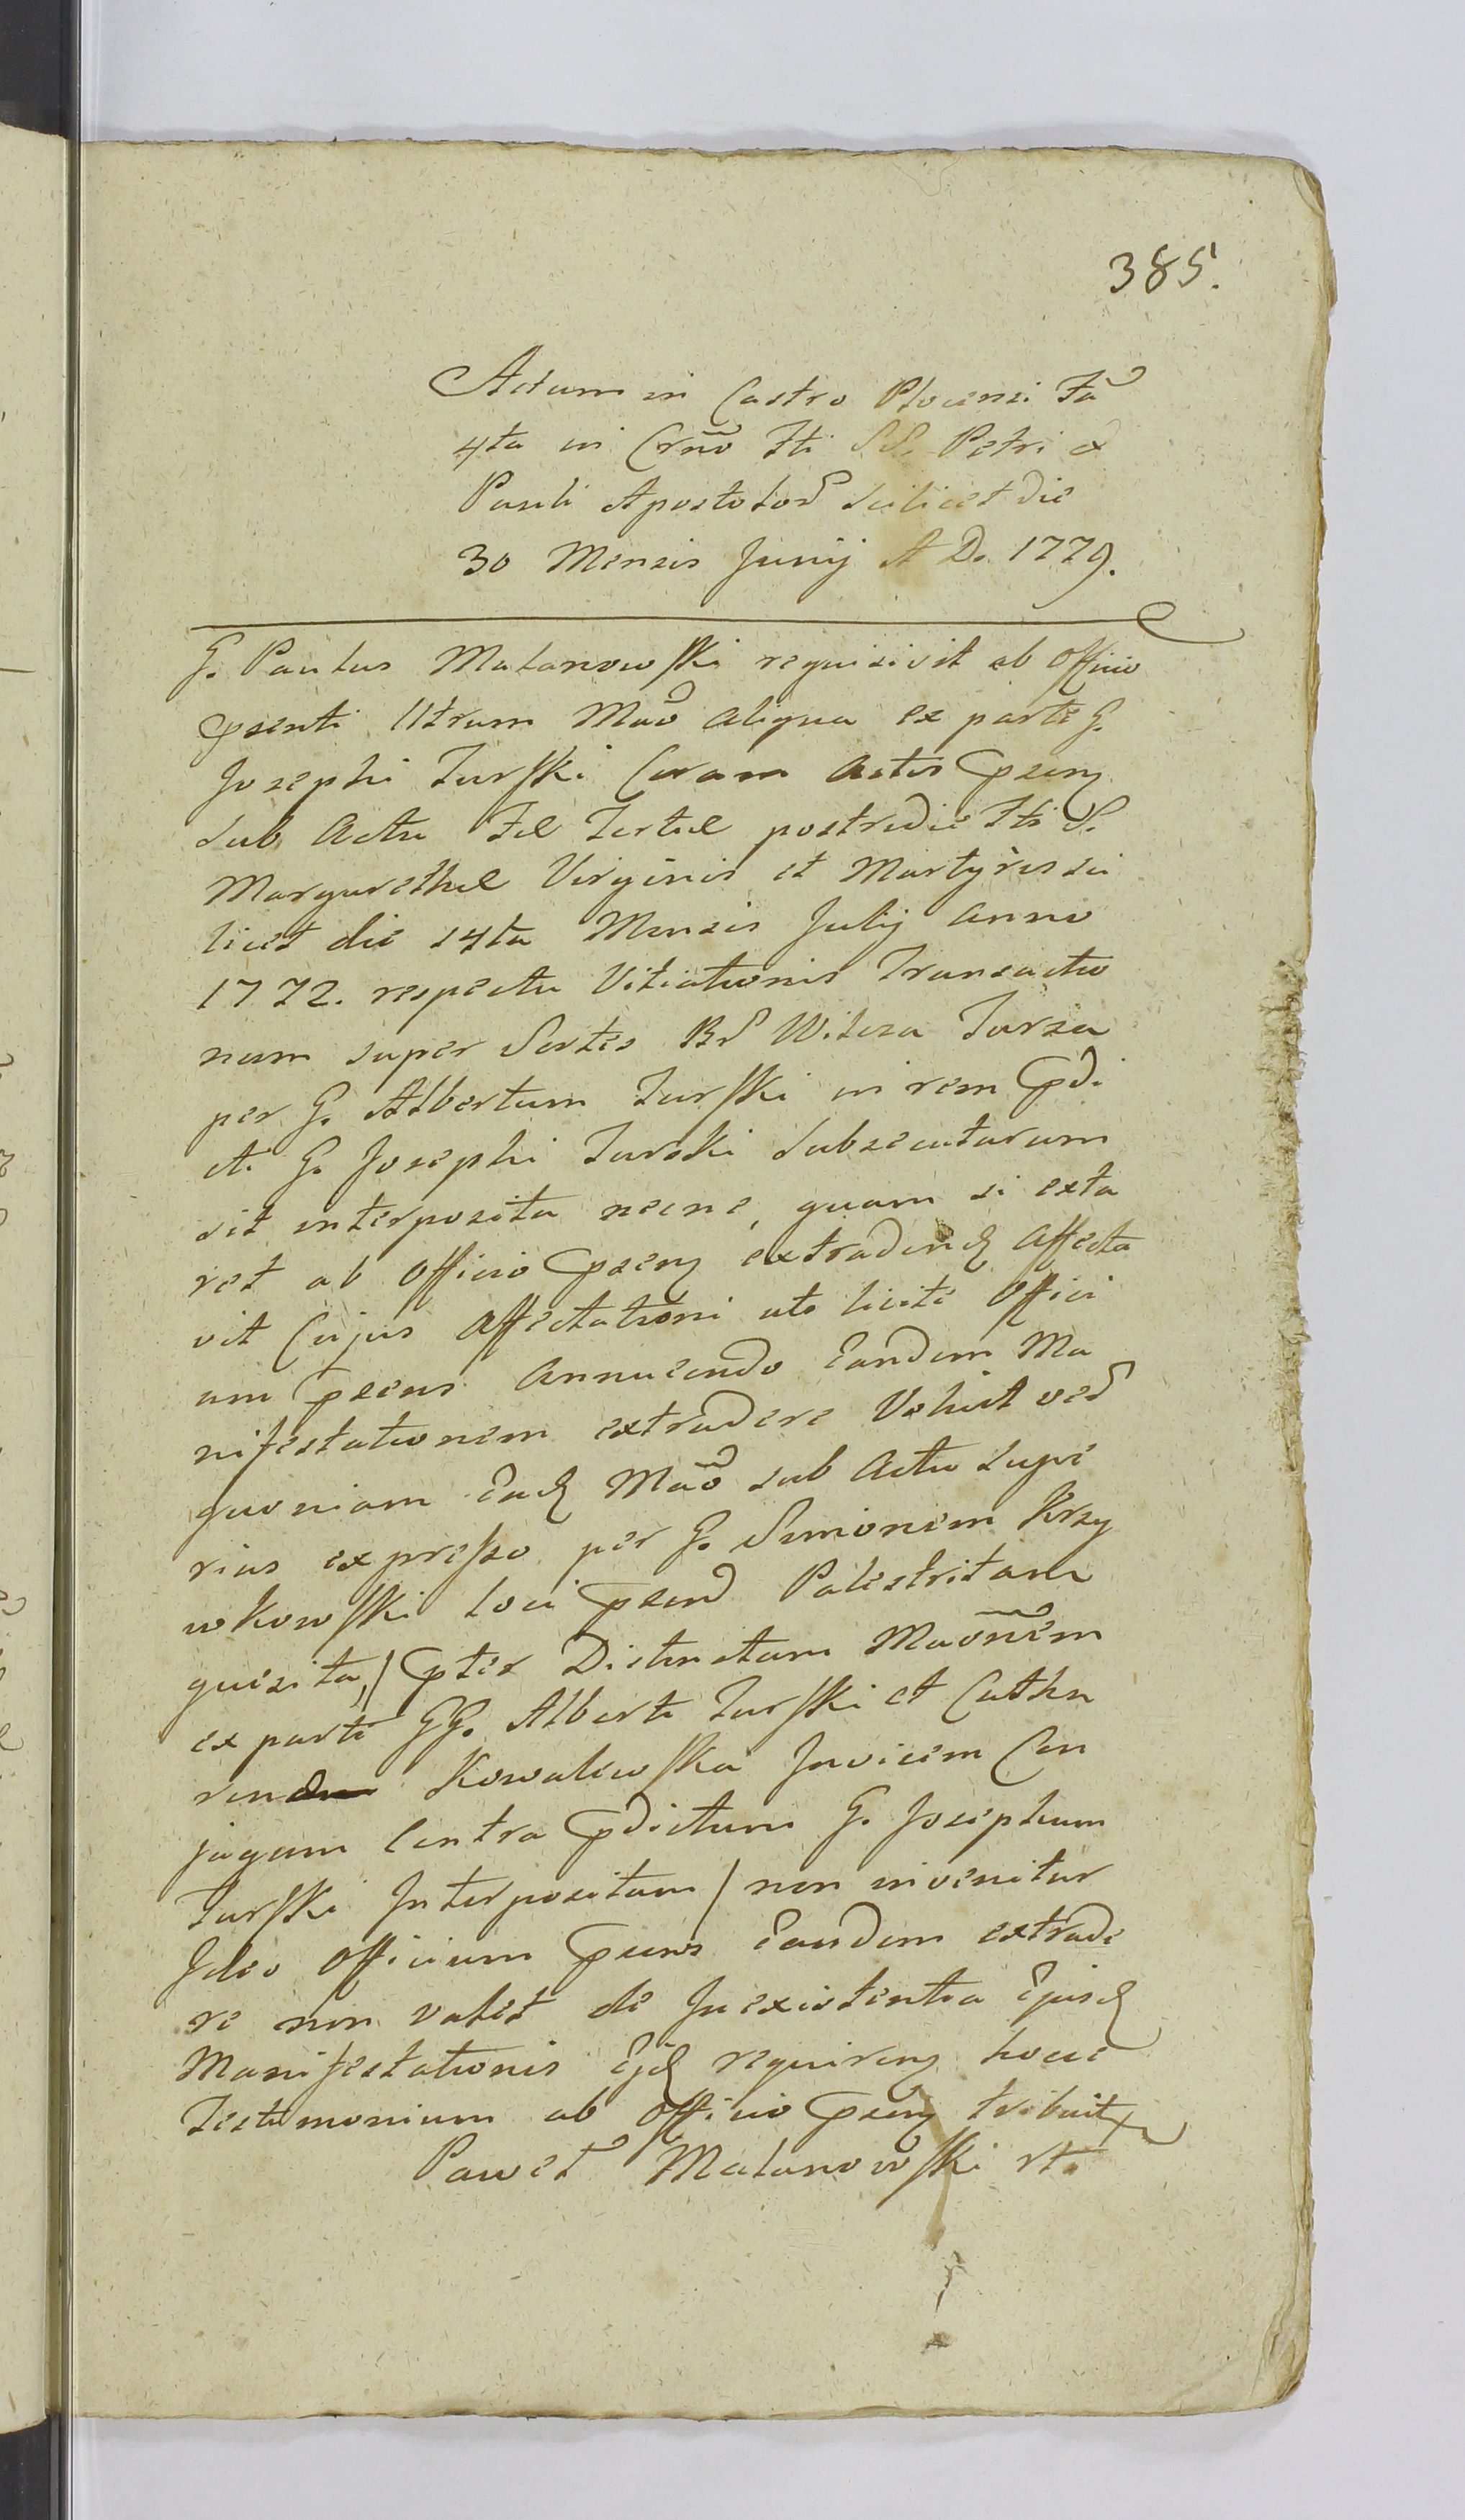 385.
Actum in Castro Plocensi Fa
4ta in Crno Fti SS. Petri &
Pauli Apostolor scilicet die
30 Mensis Junij A D. 1779.
G. Paulus Matanowski requisivit ab Officio
psenti Utrum Mao aliqua ex parte G.
Josephi Turski Coram Actis psen
sub Actu Fæ Tertiæ postridie Fti S.
Margarethæ Virginis et Martyris sci
licet die 14ta Mensis Julij Anno
1772. respectu Vitiationis Transactio
num super Sortes Br Wilcza Tursza
per G. Albertum Turski in rem pdi
cti G. Josephi Turski subsecutarum
sit interposita necne, quam si exta
ret ab Officio psen extradend affecta
vit Cujus Affectationi uti licite Offici
um psens Annuendo Eandem Ma
nifestationem extradere Voluit ver
quoniam Ead Mao sub Actu supe
rius expresso per G. Simonem Krzy
wkowski loci psen Palestritam
quesita, / pter Distinctam Maonem
ex parte GG. Alberti Turski et Catha
rin Kowalewska Invicem Con
jugum Contra pdictum G. Josephum
Turski Interpositam / non invenitur
Ideo Officium psens Eandem extrade
re non valet de Inexistentia Ejusd
Manifestationis Ejd requiren hocce
Testimonium ab Officio psen tribuit
Paweł Matanowski